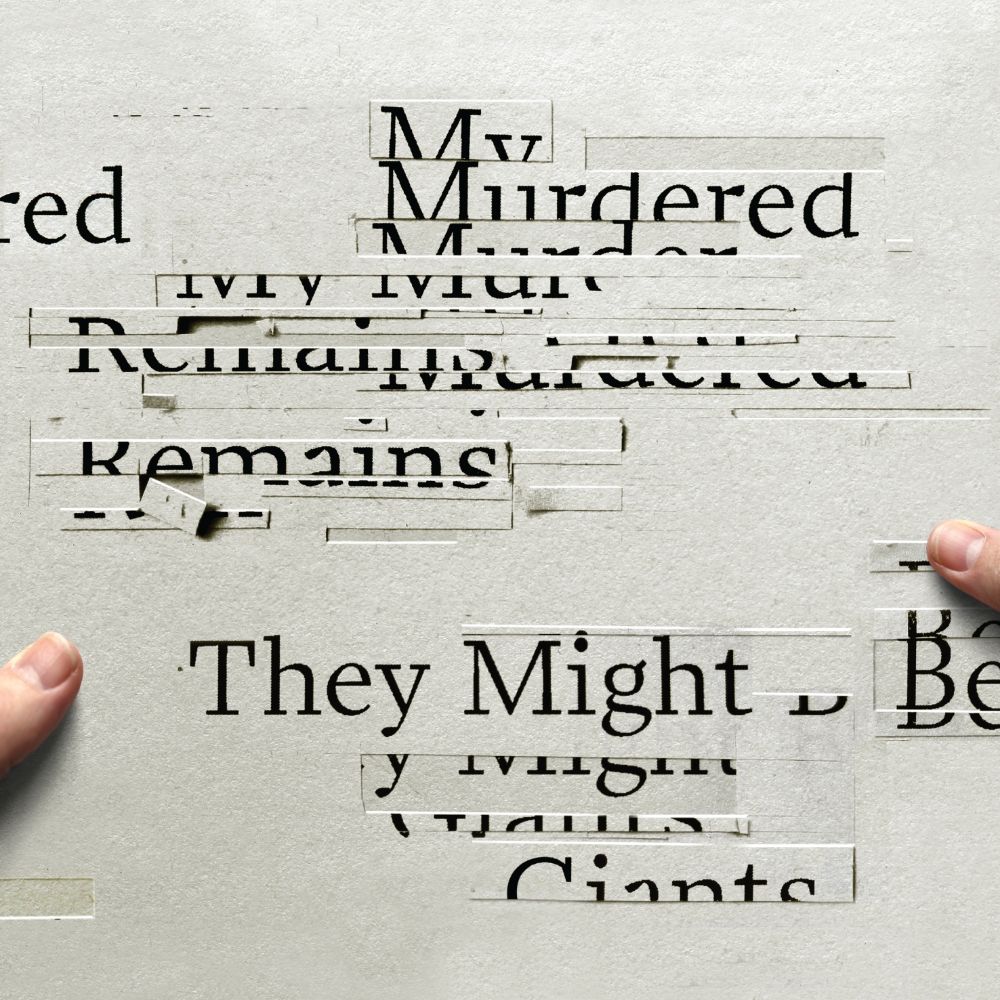 My
red Murdered
Murder
My Murde
Remains
Murdered
Remains
They Might B
Be
y Might
Giants
Giants